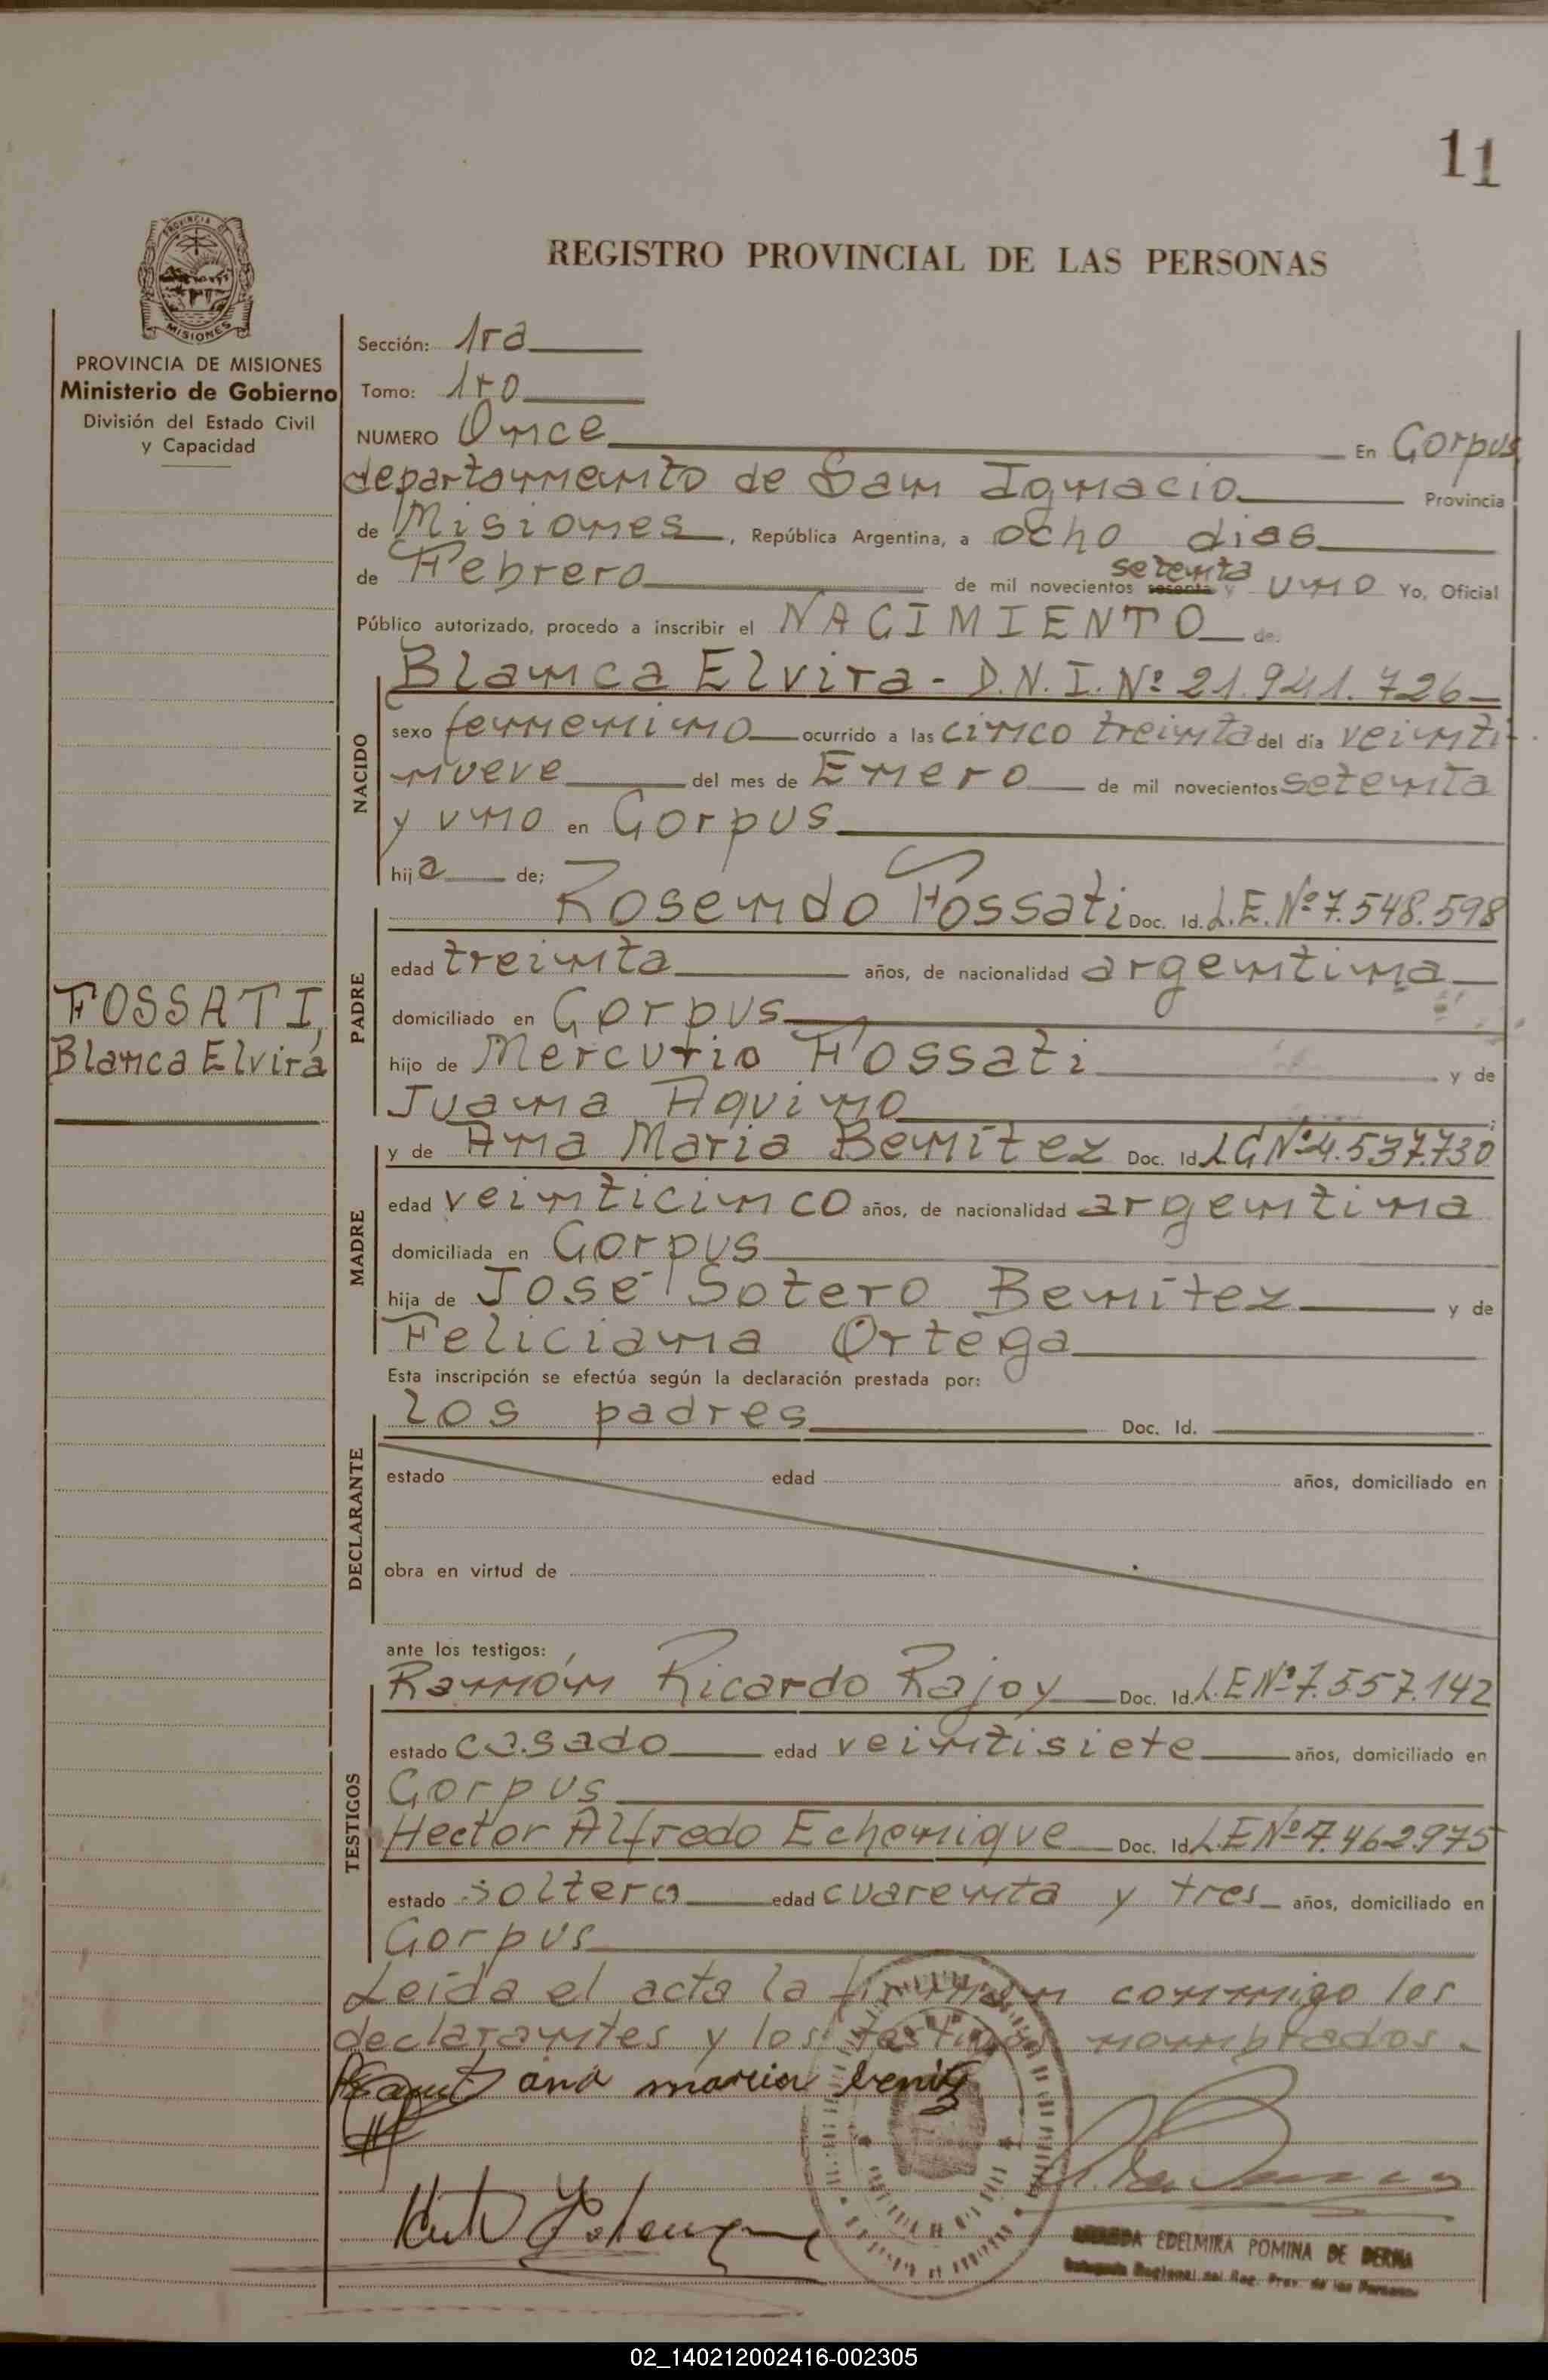 11
PROVINCIA DE
MISIONES
REGISTRO PROVINCIAL DE LAS PERSONAS
PROVINCIA DE MISIONES
Ministerio de Gobierno
División del Estado Civil
y Capacidad
Sección: 1ra
Tomo: 1ro
NUMERO Once En Corpus
departamento de San Ignacio Provincia
de Misiones, República Argentina, a ocho dias
de Febrero de mil novecientos sesenta y setenta uno Yo, Oficial
Público autorizado, procedo a inscribir el NACIMIENTO de
Blanca Elvira - D.N.I. Nº 21.941.726
NACIDO
sexo femenino ocurrido a las cinco treinta del día veinti-
nueve del mes de Enero de mil novecientos setenta
y uno en Corpus
hija de;
Rosendo Fossati Doc. Id. L.E. Nº 7.548.598
PADRE
edad treinta años, de nacionalidad argentina
domiciliado en Corpus
hijo de Mercurio Fossati y de
Juana Aquino
FOSSATI,
Blanca Elvira
y de Ana Maria Benítez Doc. Id L C Nº 4.537.730
MADRE
edad veinticinco años, de nacionalidad argentina
domiciliada en Corpus
hija de José Sotero Benítez y de
Feliciana Ortega
Esta inscripción se efectúa según la declaración prestada por:
los padres Doc. Id.
DECLARANTE
estado edad años, domiciliado en
obra en virtud de
ante los testigos:
Ramón Ricardo Rajoy Doc. Id. L.E Nº 7.557.142
TESTIGOS
estado casado edad veintisiete años, domiciliado en
Corpus
Hector Alfredo Echenique Doc. Id L.E Nº 7.462.975
estado soltero edad cuarenta y tres años, domiciliado en
Corpus
Leída el acta la firman conmigo los
declarantes y los testigos nombrados.
ana maria beniz
EDELMIRA POMINA DE
Regional del Reg. Prov. de las Personas
02_140212002416-002305